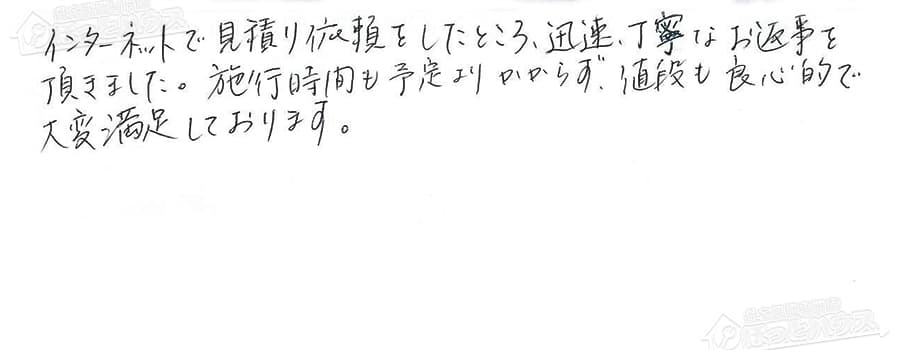 インターネットで見積り依頼をしたところ、迅速、丁寧なお返事を
頂きました。施行時間も予定よりかからず、値段も良心的で
大変満足しております。